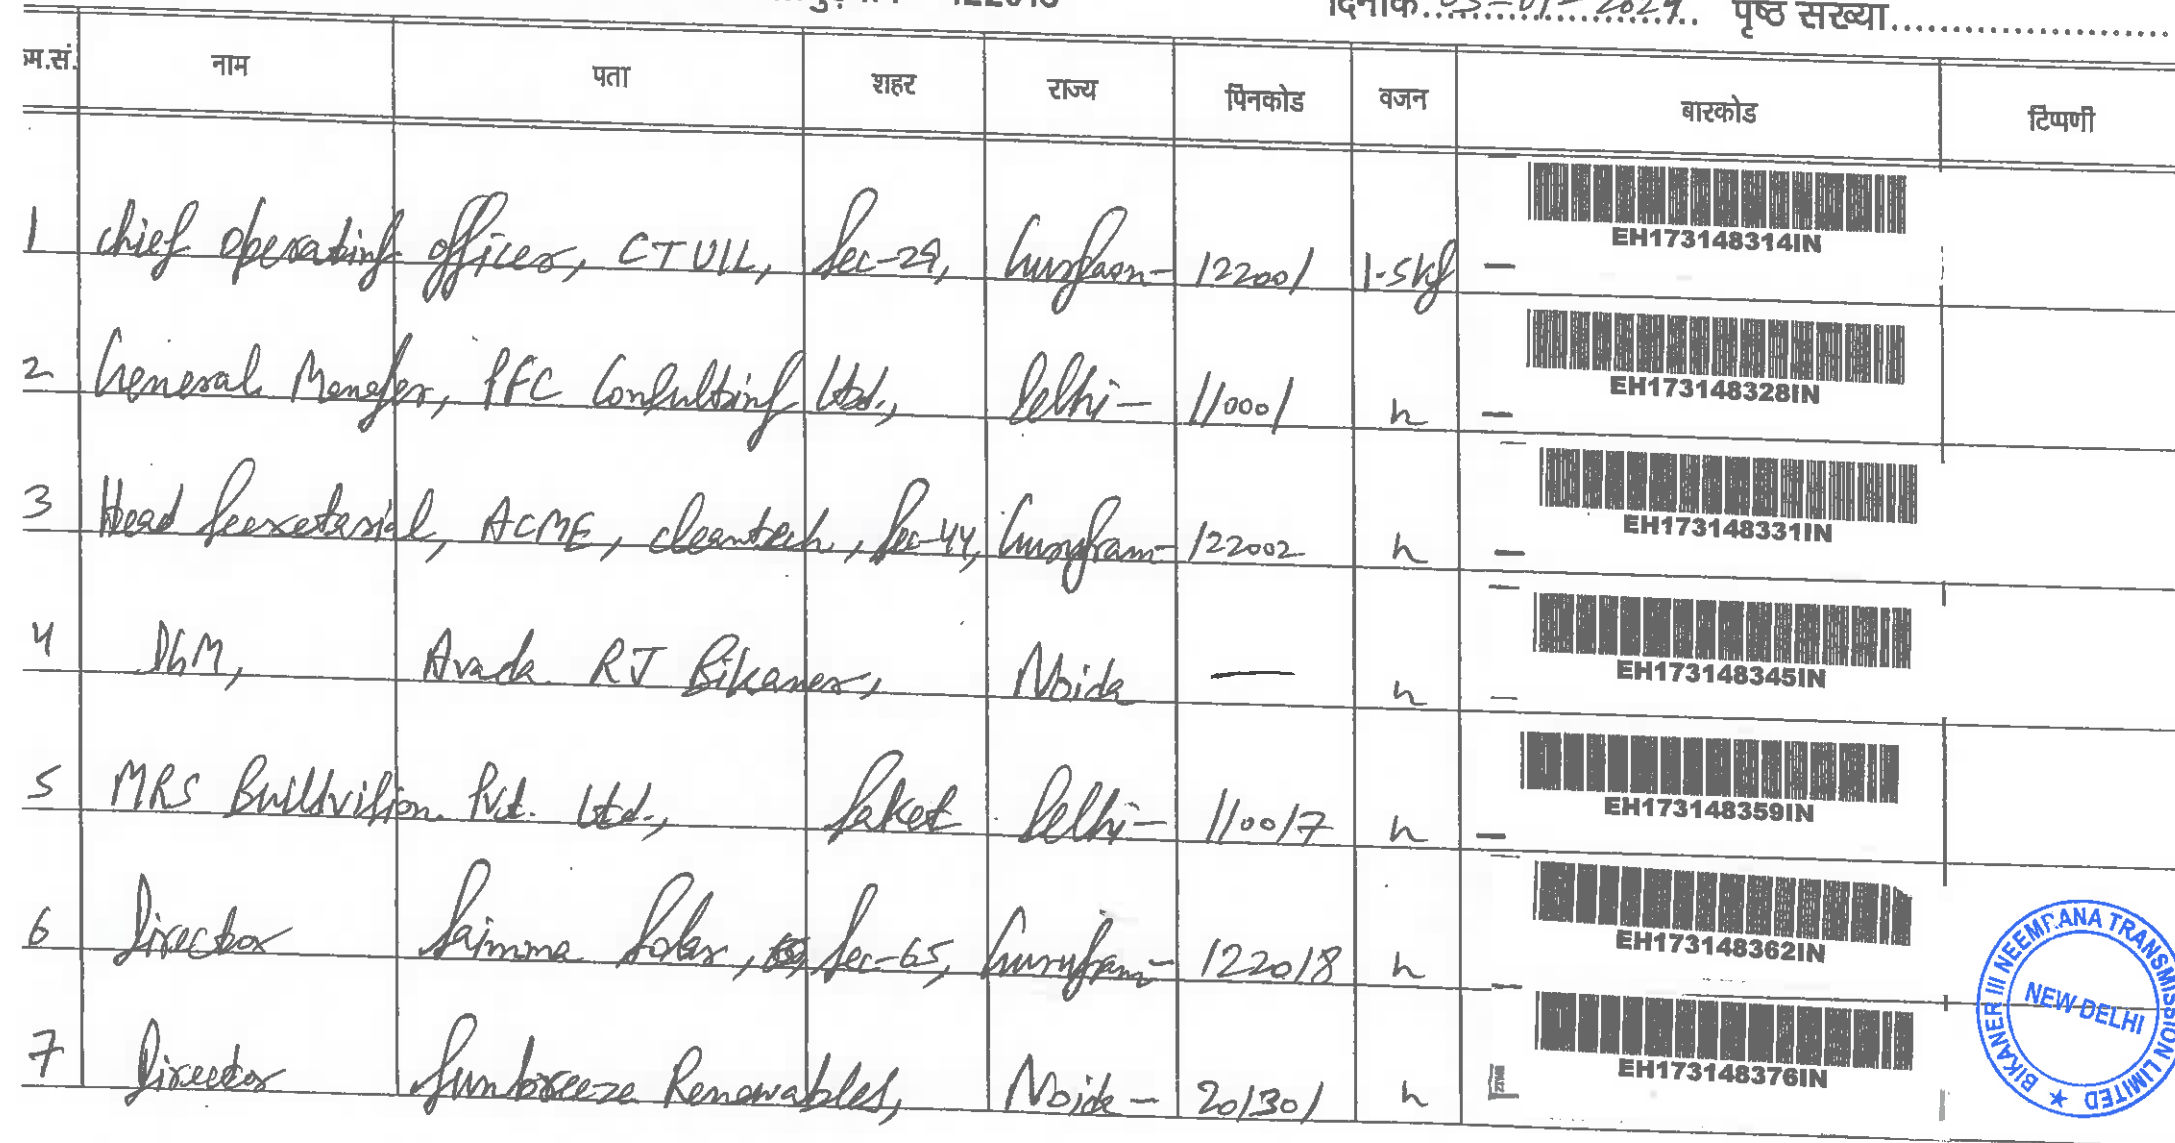 दिनांक 05-07-2024 पृष्ठ संख्या
क्र.सं. नाम पता शहर राज्य पिनकोड वजन बारकोड टिप्पणी
1 Chief Operating Officer, CTUIL, Sec-29, Gurgaon- 122001 1.5kg EH173148314IN
2 General Manager, PFC Consulting Ltd., Delhi- 110001 " EH173148328IN
3 Head Secretarial, ACME, cleantech, Sec-44, Gurugram- 122002 " EH173148331IN
4 DGM, Avada RJ Bikaner, Noida — " EH173148345IN
5 MRS Buildvision Pvt. Ltd., Saket Delhi- 110017 " EH173148359IN
6 Director Saimma Solar, Sec-65, Gurugram- 122018 " EH173148362IN
7 Director Sunbreeze Renewables, Noida- 201301 " EH173148376IN
BIKANER III NEEMRANA TRANSMISSION LIMITED ★
NEW DELHI